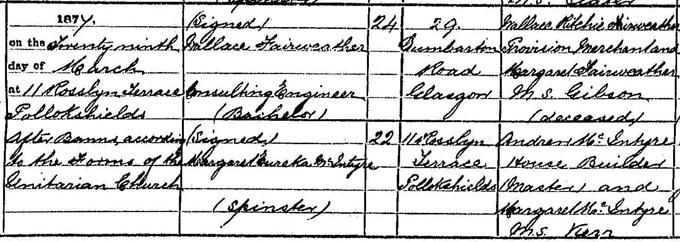 1877.
on the Twenty ninth
day of March
at 11 Rosslyn Terrace
Pollokshields
After Banns, according
to the Forms of the
Unitarian Church
(Signed)
Wallace Fairweather
Consulting Engineer
(Bachelor)
(Signed)
Margaret Eureka McIntyre
(Spinster)
24
22
29.
Dumbarton
Road
Glasgow
11 Rosslyn
Terrace
Pollokshields
Wallace Ritchie Fairweather
Provision Merchant and
Margaret Fairweather
M.S. Gibson
(deceased)
Andrew McIntyre
House Builder
(Master) and
Margaret McIntyre
M.S. Kerr